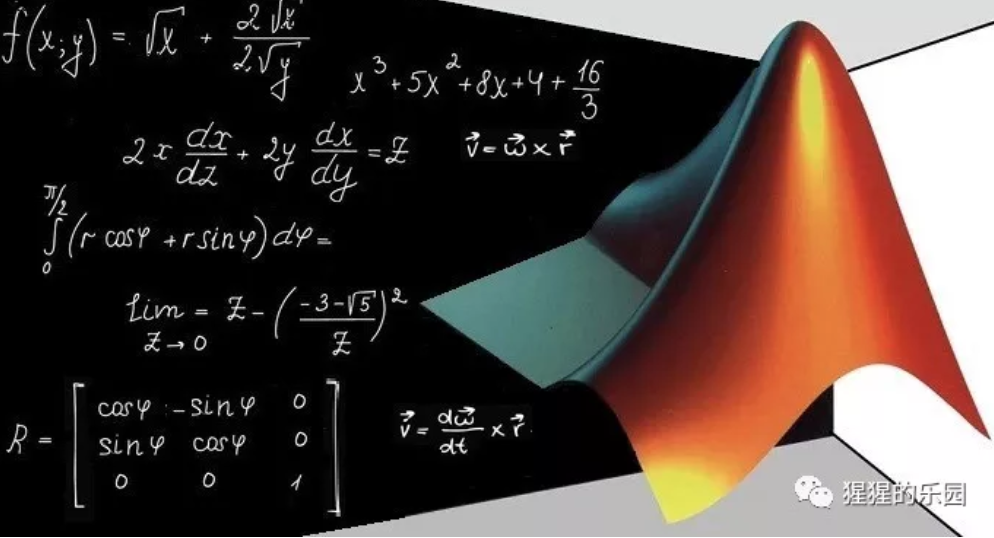 f(x;y) = √x + 2√x / 2√y
x³ + 5x² + 8x + 4 + 16/3
2x dx/dz + 2y dx/dy = z
v⃗ = ω⃗ × r⃗
π/2 ∫ 0 (r cosφ + r sinφ) dφ =
lim z→0 = z - ((-3-√5)/z)²
R = [ cosφ -sinφ 0
sinφ cosφ 0
0 0 1 ]
v⃗ = dω⃗/dt × r⃗
猩猩的乐园